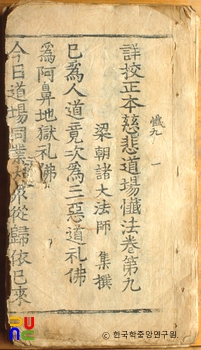 詳校正本慈悲道場懺法卷第九
梁朝諸大法師 集撰
已爲人道竟次爲三惡道礼佛
爲阿鼻地獄礼佛
今日道場同業大衆從歸依已來
懺九 一
한국학중앙연구원